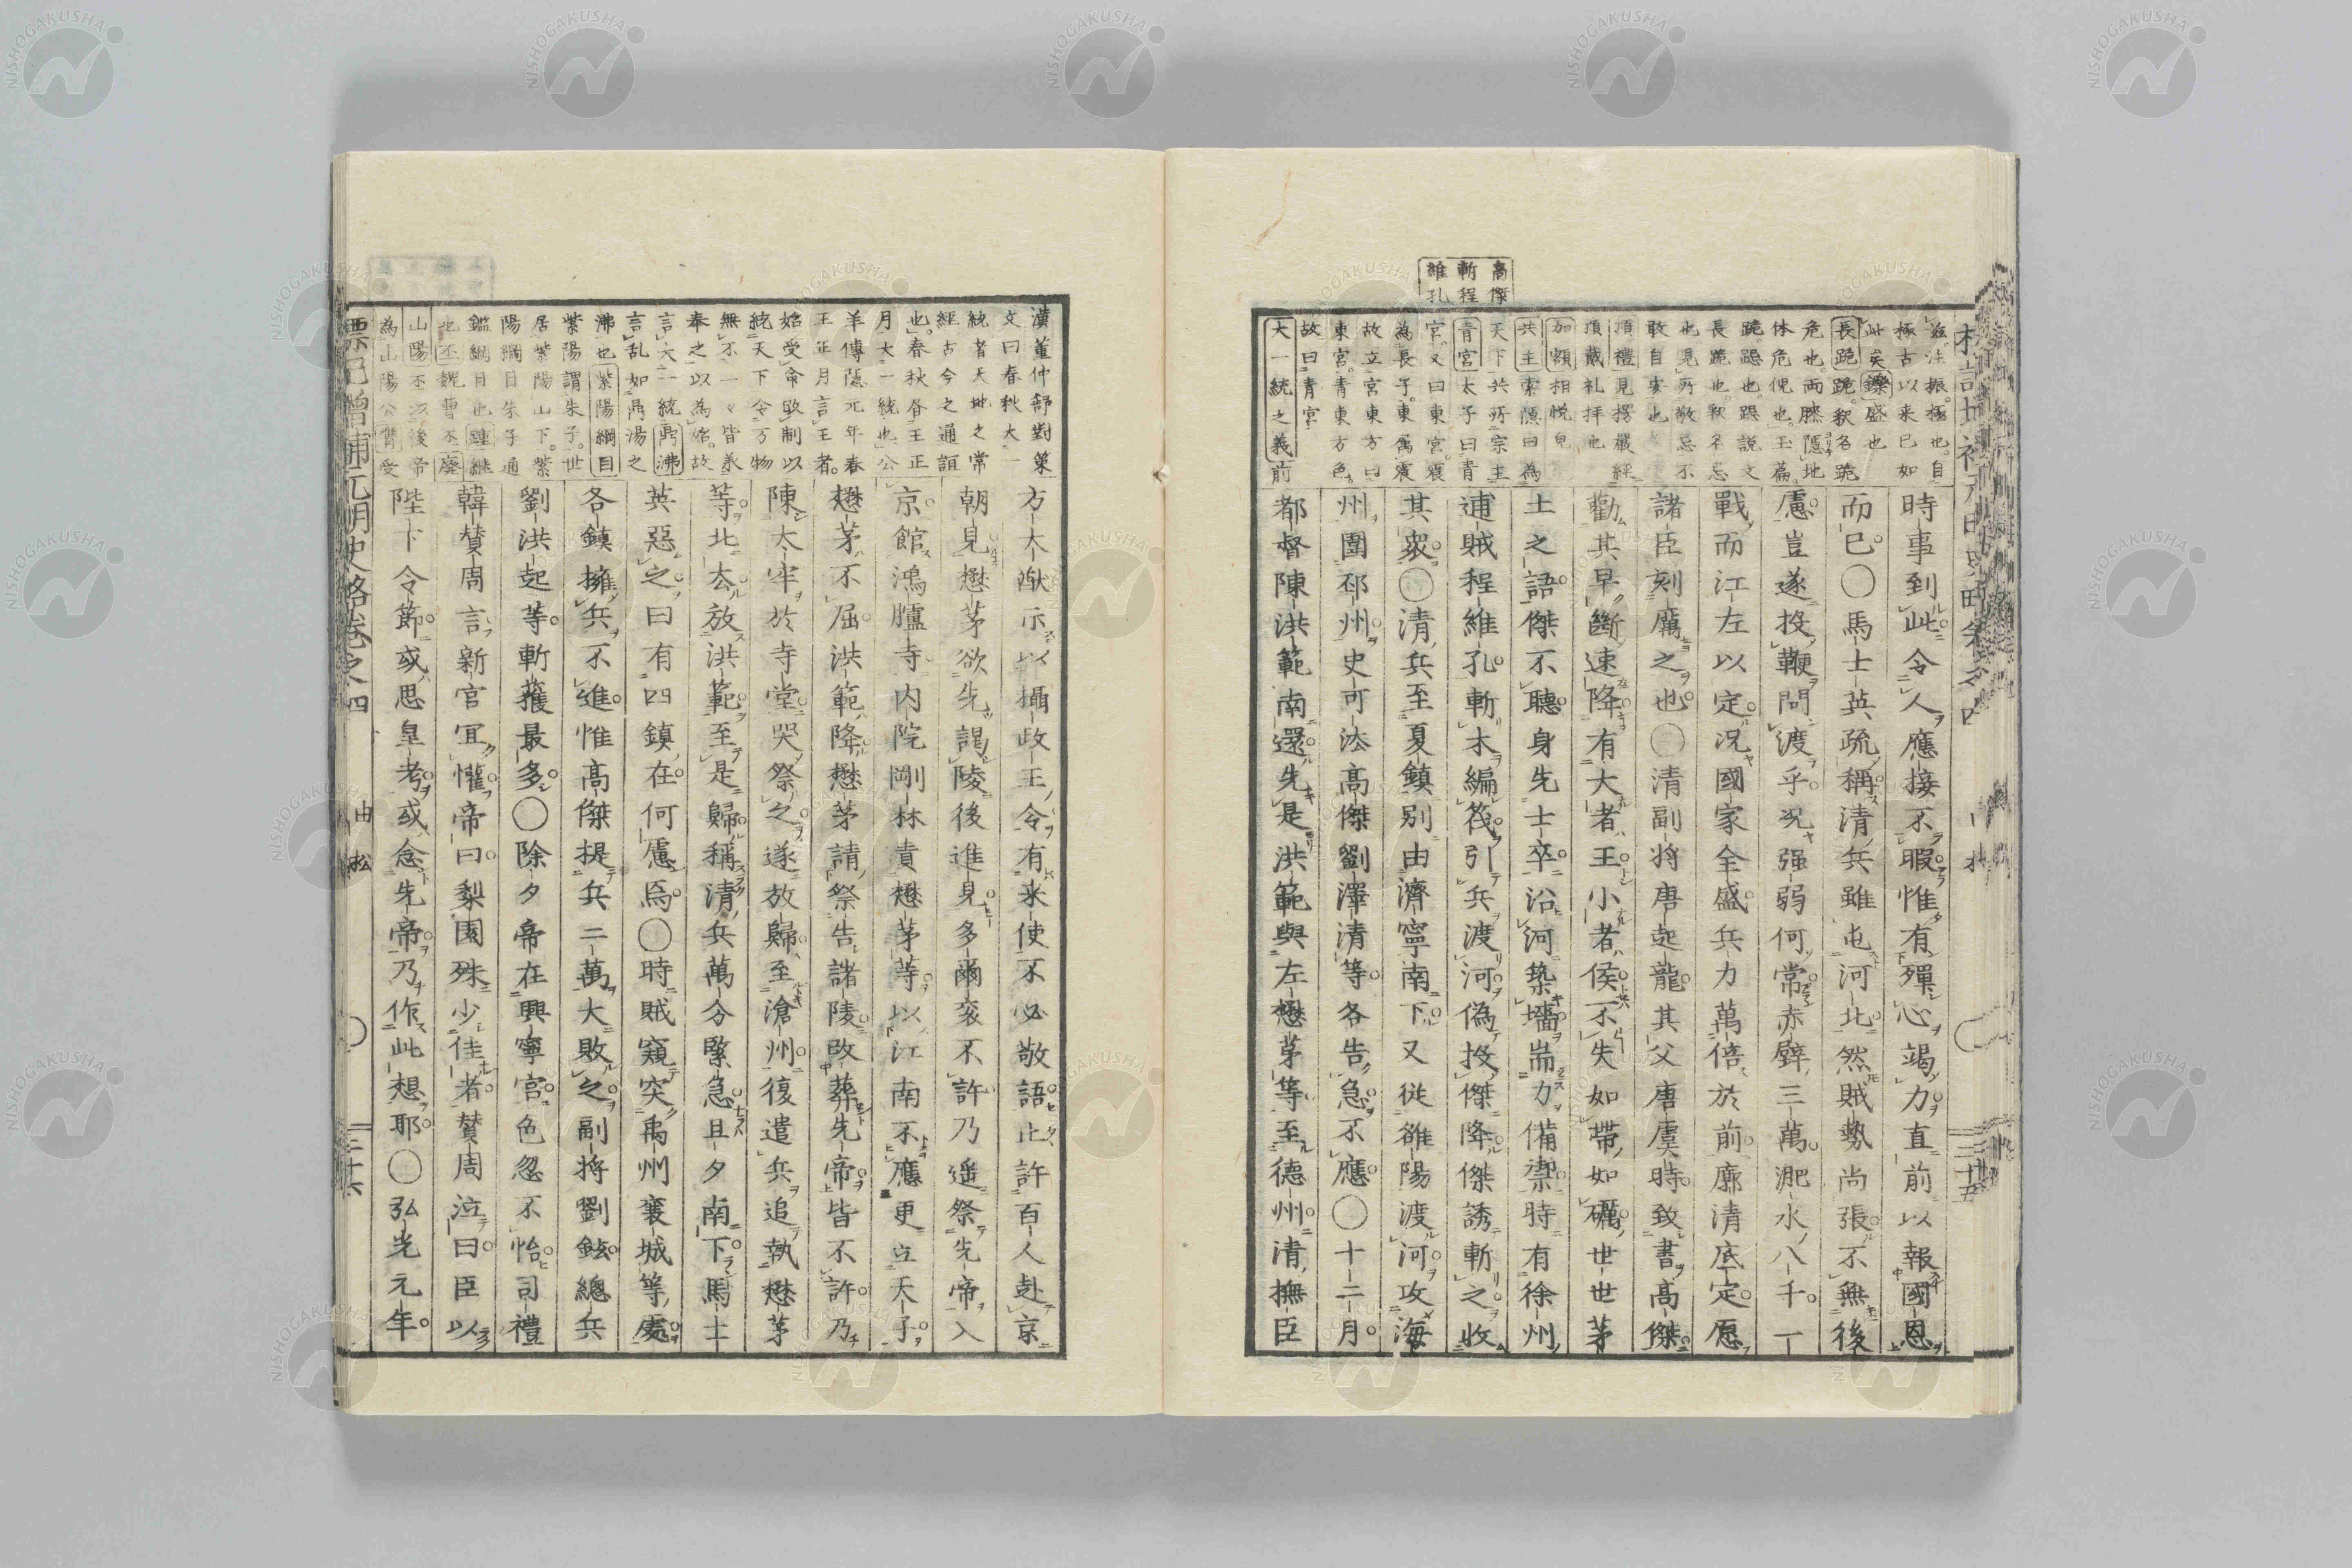 高傑
斬程
維孔
極古以来已如
此矣鑠盛也
長跪跪釈名跪
危也両膝隠地
体危倪也玉篇
跪跽也跽説文
長跪也釈名忌
也見所敬忌不
敢自安也
頂禮見楞嚴經
頂戴礼拝也
加額相悦皃
共主索隠曰為
天下共所宗主
青宮太子曰青
宮又曰東宮震
為長子東為震
故立宮東方曰
東宮青東方色
故曰青宮
大一統之義前
時事到此令人應接不暇惟有殫心竭力直前以報國恩
而已〇馬士英疏稱清兵雖屯河北然賊勢尚張不無後
慮豈遂投鞭問渡乎況强弱何常赤壁三萬淝水八千一
戰而江左以定况國家全盛兵力萬倍於前廓清底定愿
諸臣刻厲之也〇清副将唐起龍其父唐虞時致書高傑
勸其早斷速降有大者王小者侯不失如帶如礪世世茅
土之語傑不聽身先士卒沿河築墻耑力備禦時有徐州
逋賊程継孔斬木編筏引兵渡河偽投傑降傑誘斬之收
其衆〇清兵至夏鎮別由濟寧南下又従雒陽渡河攻海
州圍邳州史可法高傑劉澤清等各告急不應〇十二月
都督陳洪範南還先是洪範與左懋茅等至德州清撫臣
漢董仲舒對策
文曰春秋大一
統者天地之常
經古今之通誼
也春秋春王正
月大一統也公
羊傳隠元年春
王正月言王者
始受命改制以
統天下令万物
無不一々皆奉
奉之以為始故
言大一統鼎沸
言乱如鼎湯之
沸也紫陽綱目
紫陽謂朱子世
居紫陽山下紫
陽綱目朱子通
鑑綱目也踵継
也丕魏曹丕廢
山陽丕漢後帝
為山陽公膺受
方大猷示以攝政王令有来使不必敬語止許百人赴京
朝見懋茅欲先謁陵後進見多爾衮不許乃遥祭先帝入
京館鴻臚寺内院剛林責懋茅等以江南不應更立天子
懋茅不屈洪範降懋茅請祭告諸陵改葬先帝皆不許乃
陳太牢於寺堂哭祭之遂放歸至滄州復遣兵追執懋茅
等北去放洪範至是歸稱清兵萬分緊急旦夕南下馬士
英惡之曰有四鎮在何慮焉〇時賊窺突禹州襄城等處
各鎮擁兵不進惟高傑提兵二萬大敗之副将劉鉉總兵
劉洪起等斬獲最多〇除夕帝在興寧宮色忽不怡司禮
韓贊周言新官宜懽帝曰梨園殊少佳者贊周泣曰臣以
陛下令節或思皇考或念先帝乃作此想耶〇弘光元年
標記增補元明史略卷之四
三十六